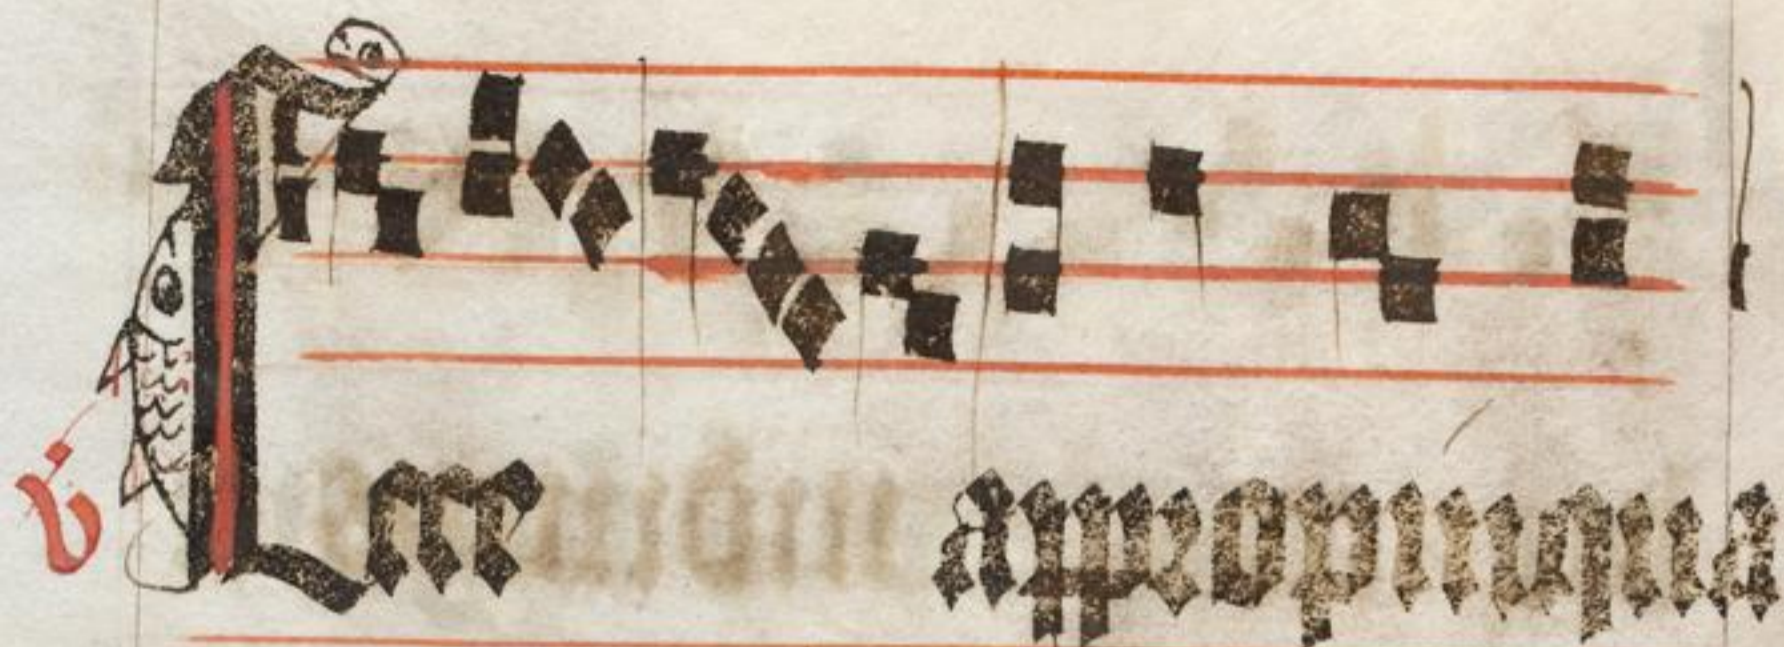 ℣ Ecce appropinqua